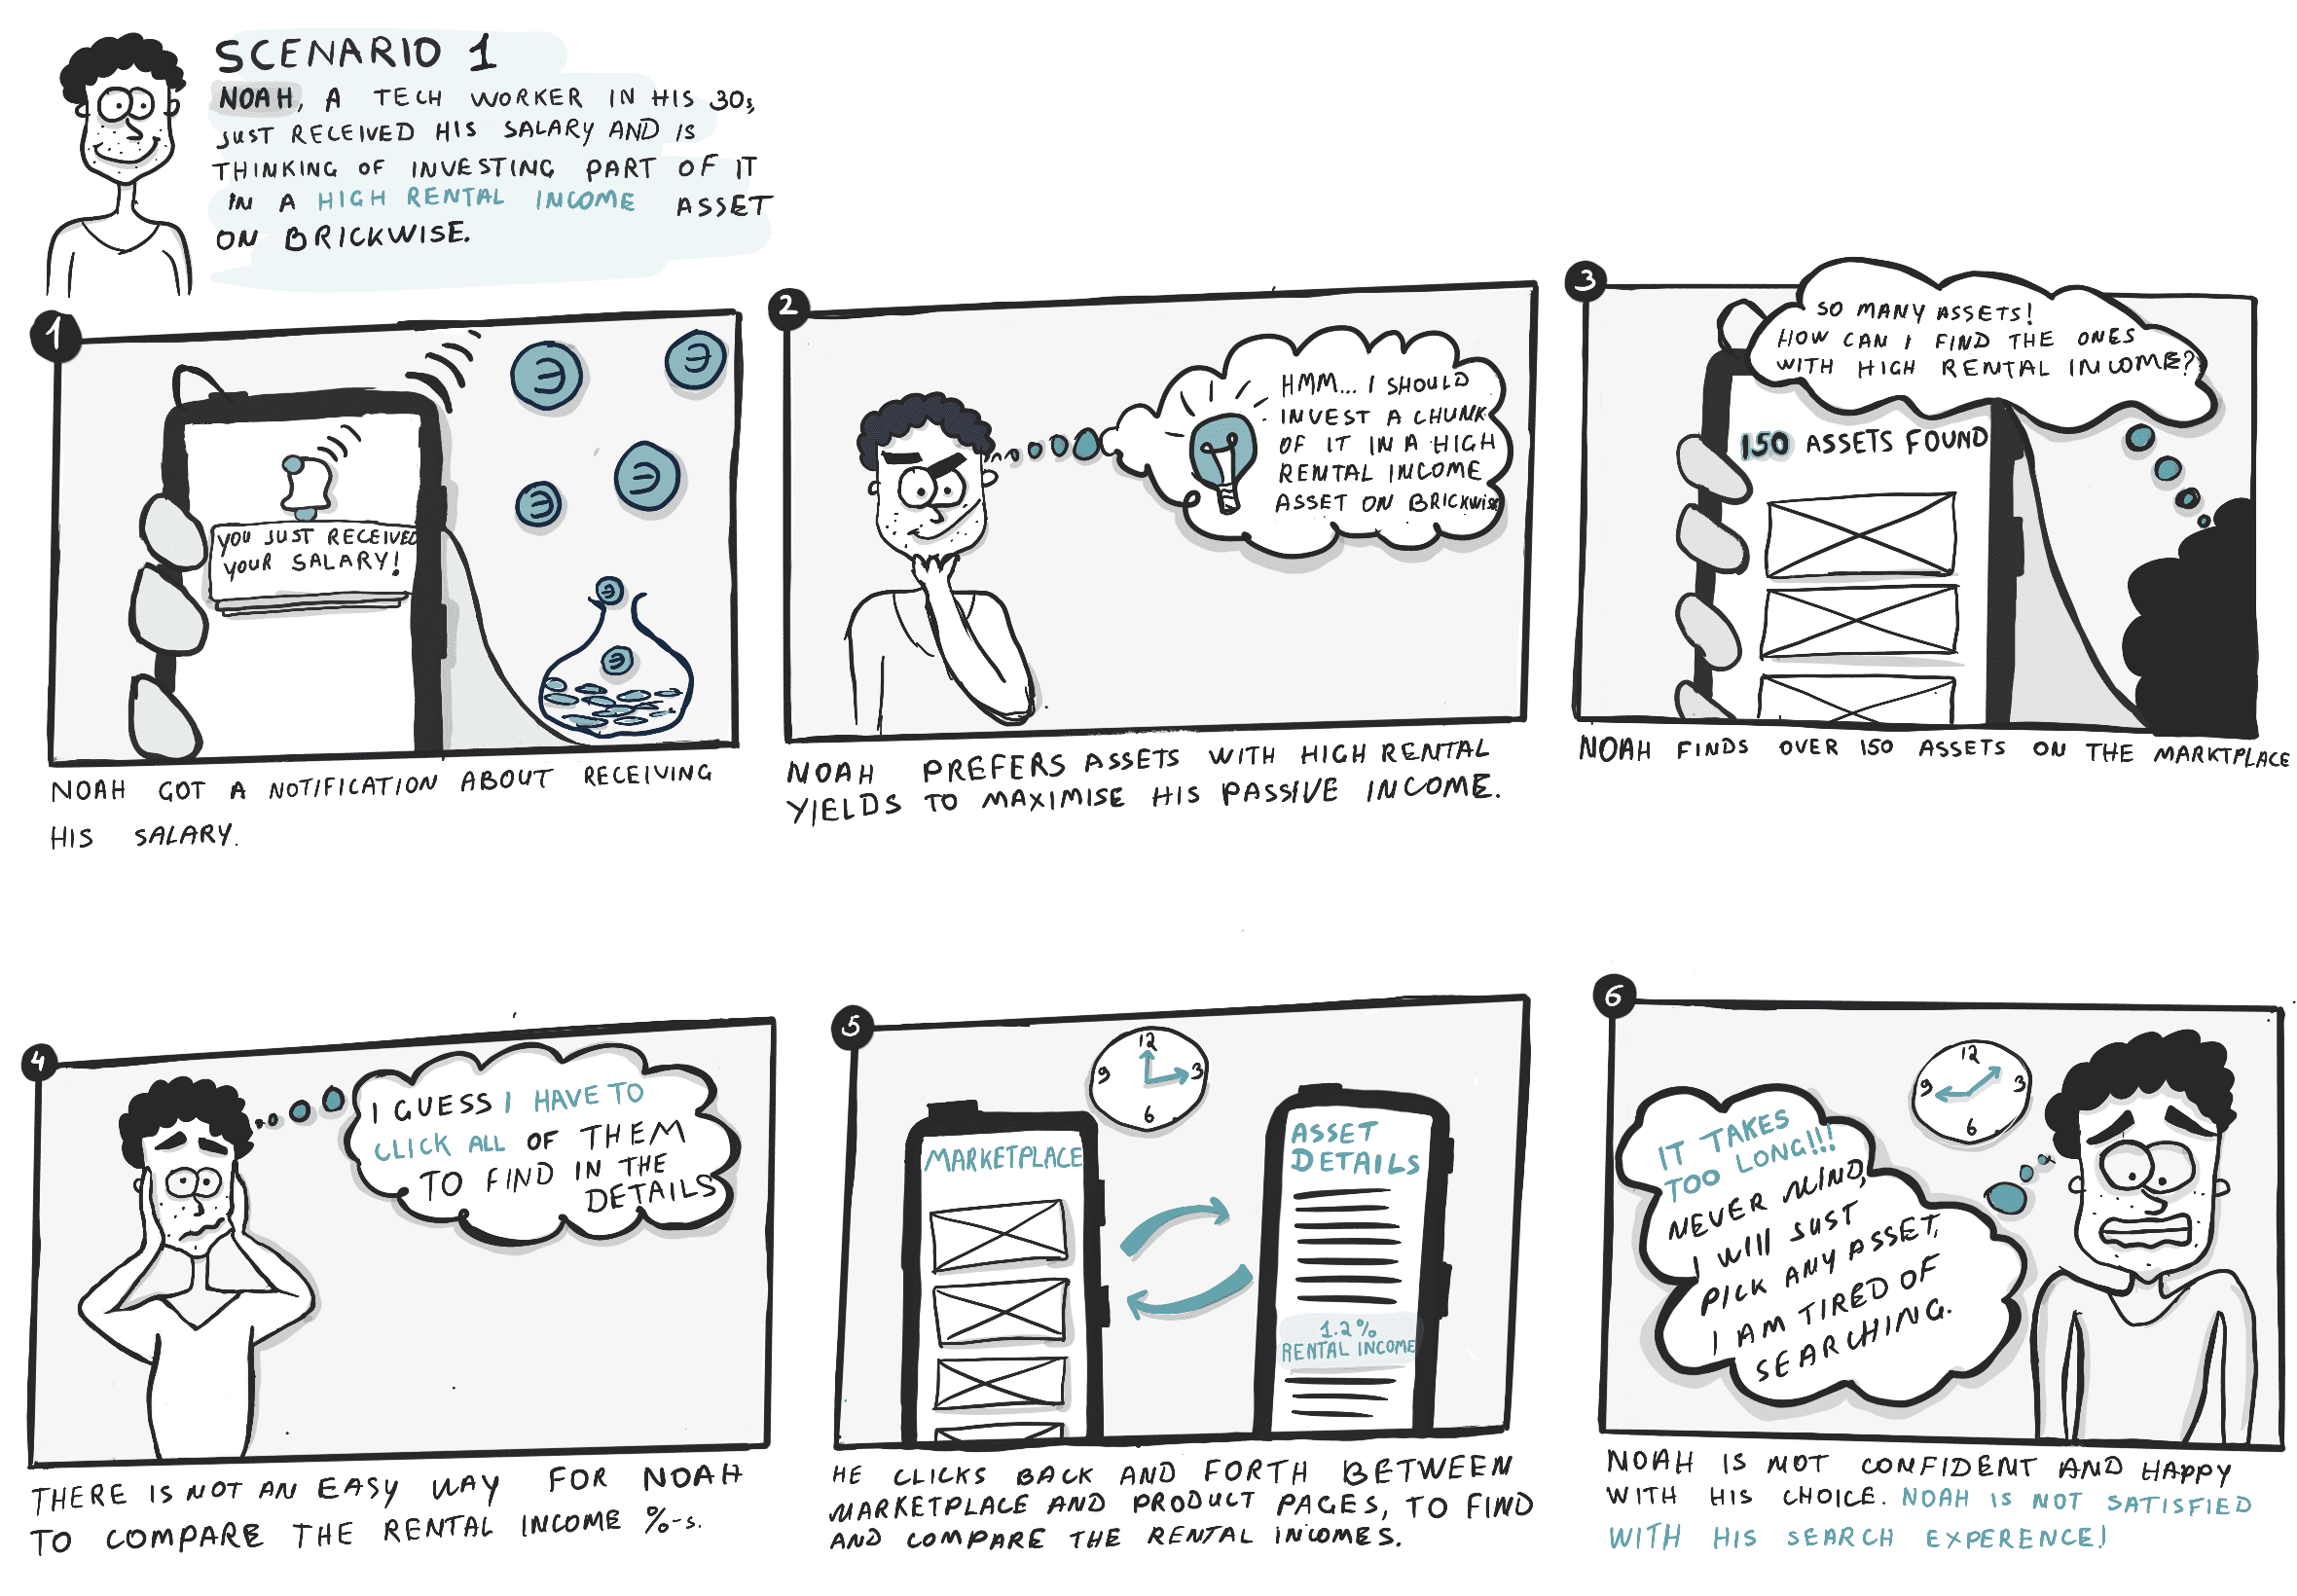 SCENARIO 1
NOAH, A TECH WORKER IN HIS 30s,
JUST RECEIVED HIS SALARY AND IS
THINKING OF INVESTING PART OF IT
IN A HIGH RENTAL INCOME ASSET
ON BRICKWISE.
1
YOU JUST RECEIVED
YOUR SALARY!
NOAH GOT A NOTIFICATION ABOUT RECEIVING
HIS SALARY.
2
HMM... I SHOULD
INVEST A CHUNK
OF IT IN A HIGH
RENTAL INCOME
ASSET ON BRICKWISE
NOAH PREFERS ASSETS WITH HIGH RENTAL
YIELDS TO MAXIMISE HIS PASSIVE INCOME.
3
SO MANY ASSETS!
HOW CAN I FIND THE ONES
WITH HIGH RENTAL INCOME?
150 ASSETS FOUND
NOAH FINDS OVER 150 ASSETS ON THE MARKTPLACE
4
I GUESS I HAVE TO
CLICK ALL OF THEM
TO FIND IN THE
DETAILS
THERE IS NOT AN EASY WAY FOR NOAH
TO COMPARE THE RENTAL INCOME %-s.
5
12
9 3
6
MARKETPLACE
ASSET
DETAILS
1.2%
RENTAL INCOME
HE CLICKS BACK AND FORTH BETWEEN
MARKETPLACE AND PRODUCT PAGES, TO FIND
AND COMPARE THE RENTAL INCOMES.
6
12
9 3
6
IT TAKES
TOO LONG!!!
NEVER MIND,
I WILL JUST
PICK ANY ASSET,
I AM TIRED OF
SEARCHING.
NOAH IS NOT CONFIDENT AND HAPPY
WITH HIS CHOICE. NOAH IS NOT SATISFIED
WITH HIS SEARCH EXPERENCE!